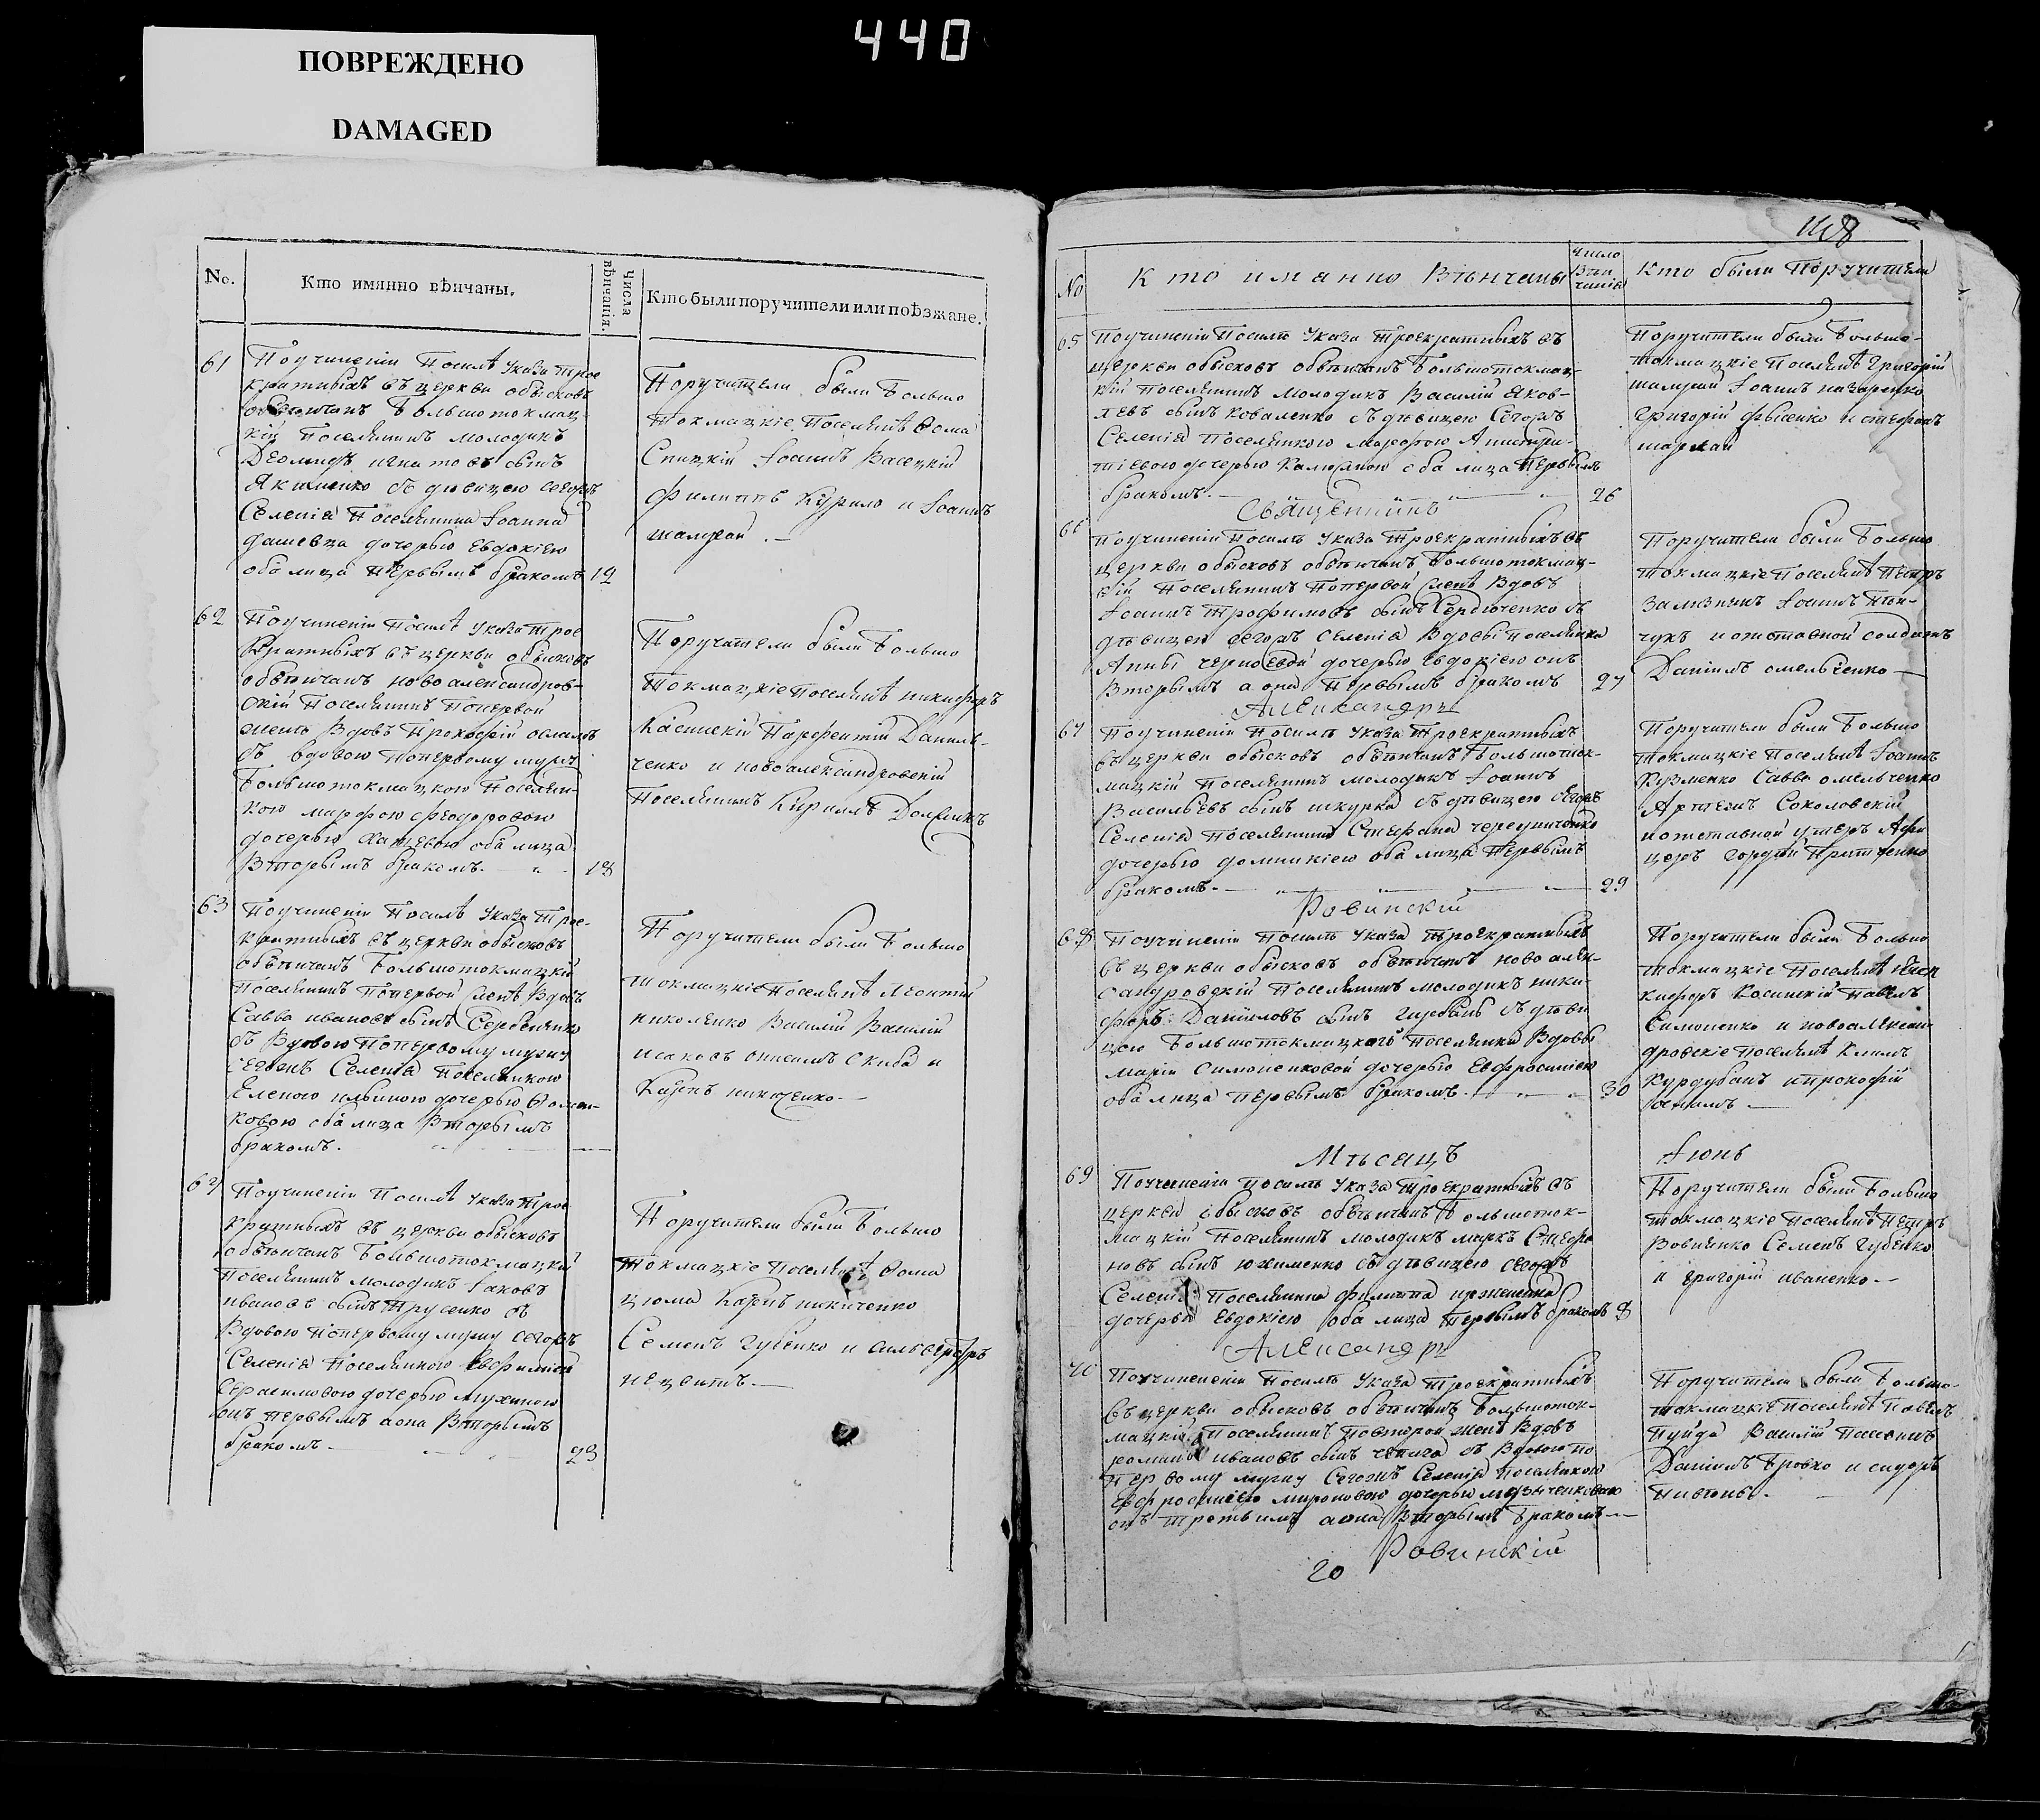 440
ПОВРЕЖДЕНО
DAMAGED
No.
Кто имянно вѣнчаны.
Числа вѣнчанія.
Кто были поручители или поѣзжане.
61
Поучиненіи Посилѣ указа трое
кратныхъ въ церкви обысковъ
обвѣнчанъ Большотокмац-
кій Поселянинъ молодикъ
Игнатовъ сынъ
Якименко съ дѣвицею сегожъ
Селенія Поселянина Іоанна
дашевца дочерью Евдокіею
оба лица Первымъ бракомъ 12
Поручители были Большо
Токмацкіе Поселянѣ Ѳома
Спицкій Іоаннъ Васецкій
филиппъ Курило и Іоаннъ
шамрай.
62
Поучиненіи Посилѣ Указа трое
кратныхъ въ церкви обысковъ
обвѣнчанъ новоалександров-
скій Поселянинъ Попервой
женѣ Вдовъ Прокофій
съ вдовою Попервому мужу
Большотокмацкою Поселян-
кою марфою феодоровою
дочерью оба лица
Вторымъ бракомъ. 18
Поручители были Большо
Токмацкіе Поселянѣ никифоръ
Касинскій Парфентій Даниль-
ченко и новоалександровскій
Поселянинъ Кирилъ
63
Поучиненіи Посилѣ Указа Трое-
кратныхъ въ церкви обысковъ
обвѣнчанъ Большотокмацкій
Поселянинъ Попервой женѣ Вдовъ
Савва ивановъ сынъ
съ Вдовою Попервому мужу
сегожъ Селенія Поселянкою
Еленою дочерью
оба лица Вторымъ
бракомъ.
Поручители были Большо
токмацкіе Поселянѣ Леонтій
николенко Василій Василій
исаковъ скиба и
Карпъ никитенко
64
Поучиненіи Посилѣ Указа Трое
кратныхъ въ церкви обысковъ
обвѣнчанъ Большотокмацкій
Поселянинъ молодикъ Іаковъ
ивановъ сынъ Трусенко съ
Вдовою Попервому мужу сегожъ
Селенія Поселянкою Евфиміею
Герасимовою дочерью
онъ первымъ а она Вторымъ
бракомъ 23
Поручители были Большо
токмацкіе Поселянѣ Ѳома
цюма Карпъ никитенко
Семенъ Губенко и
148
No
Кто иманно Вѣнчаны
Число Вѣнчанія
Кто были Поручители
65
Поучиненіи Посилѣ Указа Троекратныхъ въ
церкви обысковъ обвѣнчанъ Большотокмац-
кій Поселянинъ молодикъ Василій Яков-
левъ сынъ Коваленко съ дѣвицею Сегожъ
Селенія Поселянкою
дочерью оба лица Первымъ
бракомъ. 26
Поручители были Большо-
токмацкіе Поселянѣ Григорій
шамрай Іоаннъ назаренко
Григорій фысенко и стефанъ
Священникъ
66
Поучиненіи Посилѣ Указа Троекратныхъ въ
церкви обысковъ обвѣнчанъ Большотокмац-
кій Поселянинъ Попервой женѣ Вдовъ
Іоаннъ Трофимовъ сынъ Сердюченко съ
дѣвицею сегожъ Селенія Вдовы Поселянки
Анны дочерью Евдокіею онъ
Вторымъ а она Первымъ бракомъ 27
Поручители были Большо
токмацкіе Поселянѣ Петръ
зализнякъ Іоаннъ
и отставной солдатъ
Даніилъ омельченко
Александръ
67
Поучиненіи Посилѣ Указа Троекратныхъ
въ церкви обысковъ обвѣнчанъ Большоток-
мацкій Поселянинъ молодикъ Іоаннъ
Васильевъ сынъ шкурка съ дѣвицею сегожъ
Селенія Поселянина Стефана
дочерью домникіею оба лица Первымъ
бракомъ. 29
Поручители были Большо
токмацкіе Поселянѣ Іоаннъ
Кузменко Савва омельченко
Артемъ Соколовскій
и отставной унтеръ Афи
церъ гордѣй
Ровинскій
68
Поучиненіи Посилѣ Указа Троекратныхъ
въ церкви обысковъ обвѣнчанъ новоалек-
сандровскій Поселянинъ молодикъ ники-
форъ Даниловъ сынъ съ дѣви
цею Большотокмацкой Поселянки Вдовы
Маріи Симоненковой дочерью Евфросиніею
оба лица первымъ бракомъ. 30
Поручители были Большо
токмацкіе Поселянѣ
кифоръ Косинскій Павелъ
Симоненко и новоалексан-
дровскіе Поселянѣ Климъ
Курдубанъ и прокофій
Мѣсяцъ
Іюнь
69
Поученіи Посилѣ Указа Троекратныхъ въ
церкви обысковъ обвѣнчанъ Большоток-
мацкій Поселянинъ молодикъ маркъ Стефа
новъ сынъ юхименко съ дѣвицею сегожъ
Селенія Поселянина филиппа
дочерью Евдокіею оба лица первымъ бракомъ 8
Поручители были Большо
токмацкіе Поселянѣ Петръ
Вовченко Семенъ Губенко
и григорій иваненко
Александръ
70
Поучиненіи Посилѣ Указа Троекратныхъ
въ церкви обысковъ обвѣнчанъ Большоток-
мацкій Поселянинъ Повторой женѣ Вдовъ
романъ ивановъ сынъ съ Вдовою по
первому мужу Сегожъ Селенія Поселянкою
Евфросиніею мироновою дочерью
онъ третьимъ а она Вторымъ бракомъ
Поручители были Большо-
токмацкіе Поселянѣ Павелъ
Пуйда Василій
Даніилъ Бровко и сидоръ
Ровинскій
20